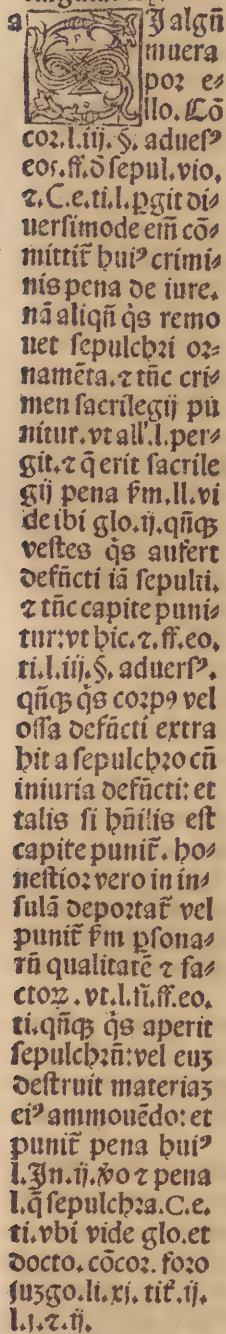 a
Ji algũ
muera
poꝛ e⸗
llo. Cõ
coꝛ.l.iij.§. aduesꝰ
eos.ff.ð sepul.vio,
⁊.C.e.ti.l.ꝑgit di⸗
uersimode eiñ cõ⸗
mittit̃ huiꝰ crimi⸗
nis pena de iure.
nã aliqñ q̃s remo
uet sepulchꝛi oꝛ⸗
namẽta.⁊ tũc cri⸗
men sacrilegij pu
nitur.vt all'.l.per⸗
git.⁊ q̃ erit sacrile
gij pena ẜm.ll.vi
de ibi glo.ij.qñqꝫ
vestes q̃s aufert
defũcti iã sepulti.
⁊ tũc capite puni⸗
tur:vt hic.⁊.ff.eo.
ti.l.iij.§. aduersꝰ.
qñqꝫ q̃s coꝛpꝰ vel
ossa defũcti extra
hit a sepulchꝛo cũ
iniuria defũcti: et
talis si hũilis est
capite punit̃. ho⸗
nestioꝛ vero in in⸗
sulã depoꝛtat̃ vel
punit̃ ẜm ꝑsona⸗
rũ qualitatẽ ⁊ fa⸗
ctoꝝ. vt.l.fi.ff.eo.
ti.qñqꝫ q̃s aperit
sepulchꝛũ:vel euꝫ
destruit materiaꝫ
eiꝰ ammouẽdo: et
punit̃ pena huiꝰ
l.Jn.ij.ꝟo ⁊ pena
l.q̃ sepulchꝛa.C.e.
ti.vbi vide glo.et
docto.cõcoꝛ. foꝛo
juzgo.li.xj. tit̃.ij.
l.j.⁊.ij.